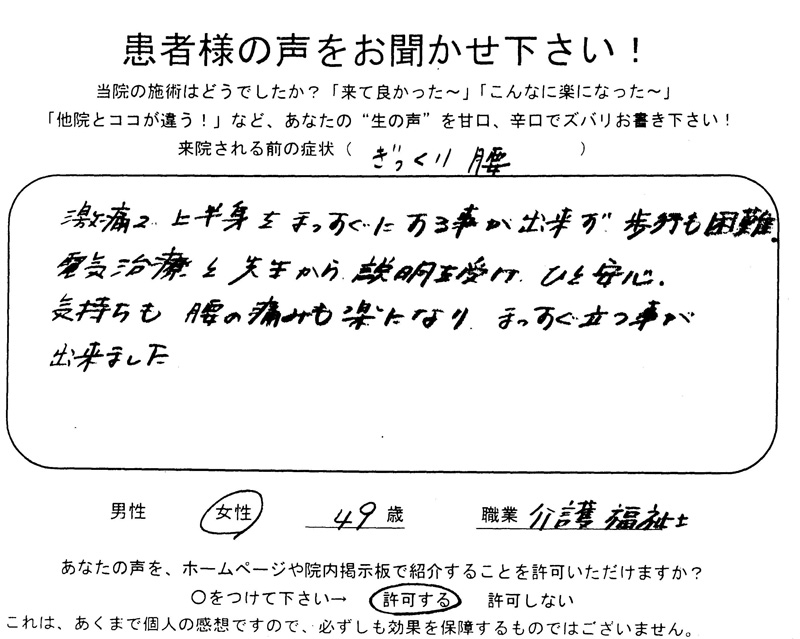 患者様の声をお聞かせ下さい！
当院の施術はどうでしたか？「来て良かった～」「こんなに楽になった～」
「他院とココが違う！」など、あなたの“生の声”を甘口、辛口でズバリお書き下さい！
来院される前の症状（ ぎっくり腰 ）
激痛で 上半身をまっすぐにする事が出来ず 歩行も困難.
電気治療と先生から説明を受け ひと安心.
気持ちも 腰の痛みも楽になり まっすぐ立つ事が
出来ました
男性 女性 49歳 職業 介護福祉士
あなたの声を、ホームページや院内掲示板で紹介することを許可いただけますか？
○をつけて下さい→ 許可する 許可しない
これは、あくまで個人の感想ですので、必ずしも効果を保障するものではございません。